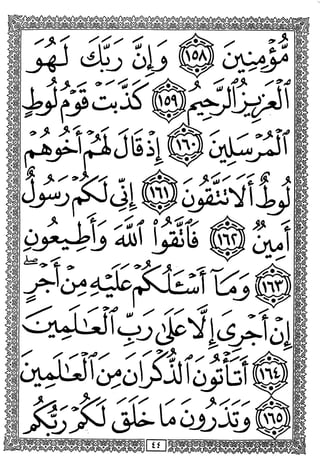 مُّؤْمِنِينَ ١٥٨ وَإِنَّ رَبَّكَ لَهُوَ
ٱلْعَزِيزُ ٱلرَّحِيمُ ١٥٩ كَذَّبَتْ قَوْمُ لُوطٍ
ٱلْمُرْسَلِينَ ١٦٠ إِذْ قَالَ لَهُمْ أَخُوهُمْ
لُوطٌ أَلَا تَتَّقُونَ ١٦١ إِنِّى لَكُمْ رَسُولٌ
أَمِينٌ ١٦٢ فَٱتَّقُوا۟ ٱللَّهَ وَأَطِيعُونِ
١٦٣ وَمَآ أَسْـَٔلُكُمْ عَلَيْهِ مِنْ أَجْرٍ ۖ
إِنْ أَجْرِىَ إِلَّا عَلَىٰ رَبِّ ٱلْعَـٰلَمِينَ
١٦٤ أَتَأْتُونَ ٱلذُّكْرَانَ مِنَ ٱلْعَـٰلَمِينَ
١٦٥ وَتَذَرُونَ مَا خَلَقَ لَكُمْ رَبُّكُم
٤٤